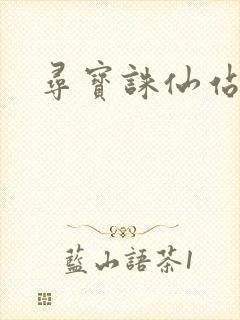 尋寶誅仙佔
藍山語茶1